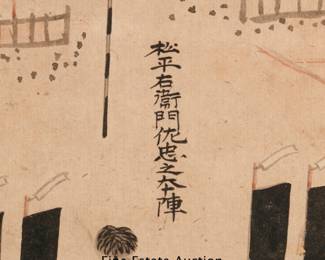 松平右衛門佐忠之本陣
Fine Estate Auction